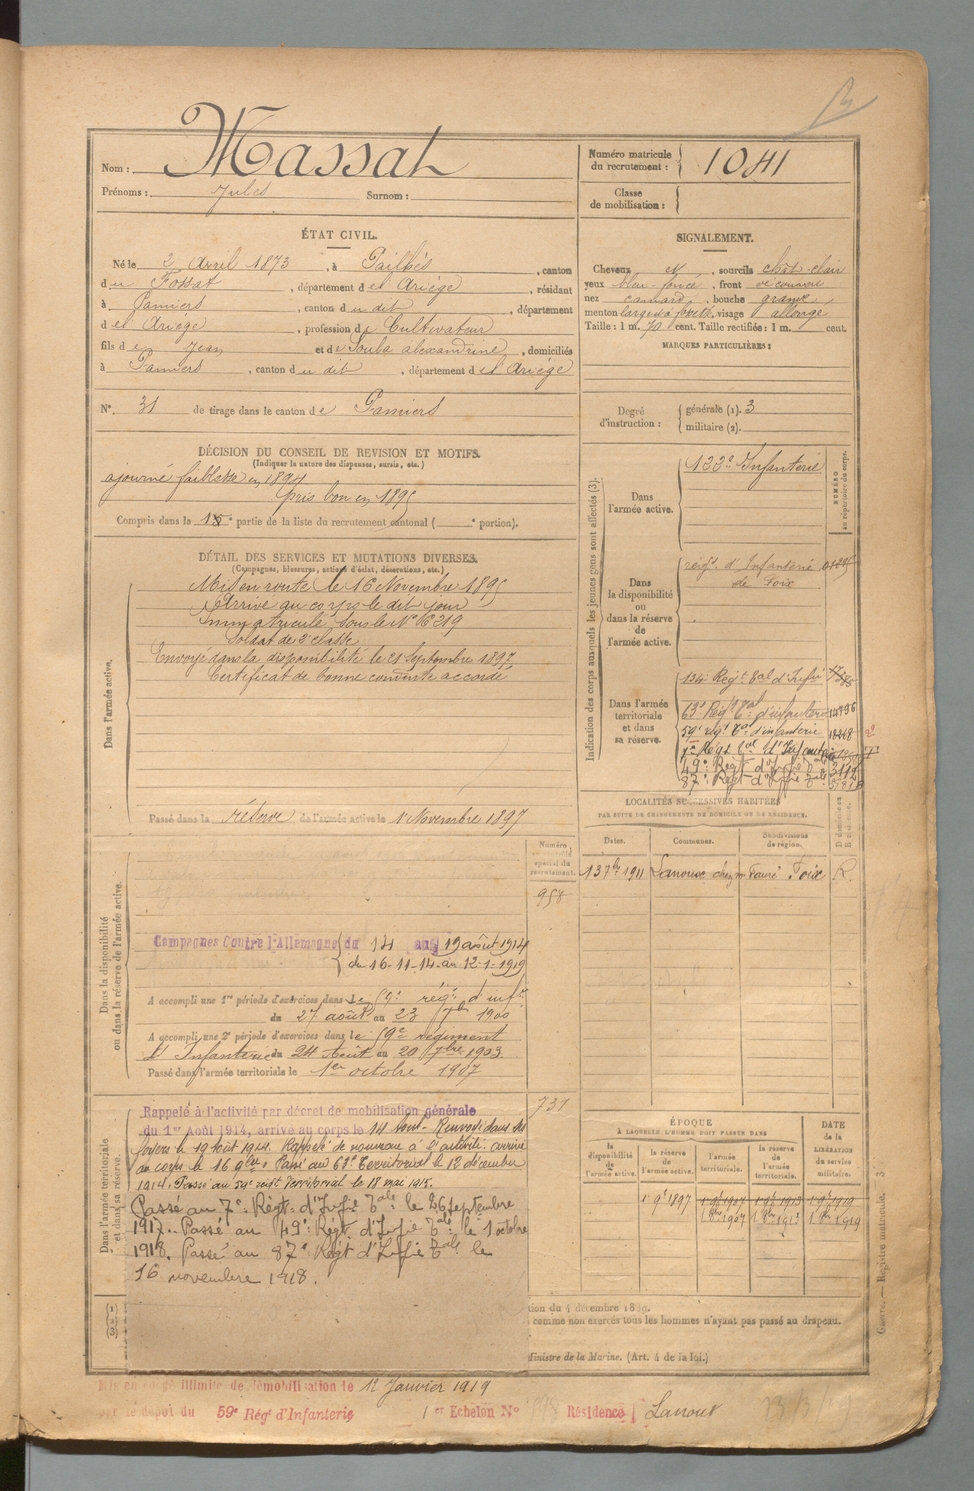 Massat
Nom :
Prénoms : Jules Surnom :
Numéro matricule
du recrutement : 1041
Classe
de mobilisation :
ÉTAT CIVIL.
Né le 2 Avril 1873, à Pailhès, canton
du Fossat, département de l'Ariège, résidant
à Pamiers, canton du dit, département
de l'Ariège, profession de Cultivateur
fils de Jean et de Soula alexandrine, domiciliés
à Pamiers, canton du dit, département de l'Ariège
N° 31 de tirage dans le canton de Pamiers
SIGNALEMENT.
Cheveux N, sourcils chât-clair
yeux bleu-foncé, front découvert
nez camard, bouche grande
menton large à fossette, visage allongé
Taille : 1 m. 70 cent. Taille rectifiée : 1 m. cent.
MARQUES PARTICULIÈRES :
Degré
d'instruction :
générale (1). 3
militaire (2).
DÉCISION DU CONSEIL DE REVISION ET MOTIFS.
(Indiquer la nature des dispenses, sursis, etc.)
ajourné faiblesse en 1894
pris bon en 1895
Compris dans la 1e partie de la liste du recrutement cantonal ( e portion).
DÉTAIL DES SERVICES ET MUTATIONS DIVERSES.
(Campagnes, blessures, actions d'éclat, décorations, etc.)
Dans l'armée active.
Mis en route le 16 Novembre 1895
Arrivé au corps le dit jour
Immatriculé sous le N° 16219
Soldat de 2e classe
Envoyé dans la disponibilité le 21 Septembre 1897
Certificat de bonne conduite accordé
Passé dans la réserve de l'armée active le 1 Novembre 1897
Indication des corps auxquels les jeunes gens sont affectés (3).
NUMÉRO
au répertoire du corps.
Dans
l'armée active.
122e Infanterie
Dans
la disponibilité
ou
dans la réserve
de
l'armée active.
régt d'Infanterie
de Foix
Dans l'armée
territoriale
et dans
sa réserve.
134e Régt Eal d'Infie
63e Régt Tal d'infanterie 14796
59e régt Tal d'infanterie 18268
7e Régt Tal d'Infanterie
49e Régt d'Infie Tale
87e Régt d'Infie Tale
LOCALITÉS SUCCESSIVES HABITÉES
PAR SUITE DE CHANGEMENTS DE DOMICILE OU DE RÉSIDENCE.
Dates. Communes. Subdivisions
de région.
13 7bre 1911 Lanoux chez Mr Fauré Foix R.
Dans la disponibilité
ou dans la réserve de l'armée active.
Numéro
au contrôle
spécial du
recrutement.
958
Campagnes Contre l'Allemagne du 14 au 19 août 1914
du 16-11-14 au 12-1-1919
A accompli une 1re période d'exercices dans le 59e régt d'infie
du 27 août au 23 7bre 1900
A accompli une 2e période d'exercices dans le 59e régiment
d'Infanterie du 24 Août au 20 7bre 1903
Passé dans l'armée territoriale le 1er octobre 1907
Dans l'armée territoriale
et dans sa réserve.
731
Rappelé à l'activité par décret de mobilisation générale
du 1er Août 1914, arrivé au corps le 14 Août. Renvoyé dans ses
foyers le 19 Août 1914. Rappelé de nouveau à l'activité. arrivé
au corps le 16 9bre. Passé au 63e Territorial le 12 décembre
1914. Passé au 59e régt Territorial le 18 mai 1915.
Passé au 7e Régt. d'Infie Tale le 26 Septembre
1917. Passé au 49e Régt d'Infie Tale le 1 octobre
1918. Passé au 87e Régt d'Infie Tale le
16 novembre 1918.
ÉPOQUE
À LAQUELLE L'HOMME DOIT PASSER DANS
DATE
de la
LIBÉRATION
du service
militaire.
la
disponibilité
de
l'armée active.
la réserve
de
l'armée active.
l'armée
territoriale.
la réserve
de
l'armée
territoriale.
1 9e 1897 1 9e 1907 1 9e 1913 1 9e 1919
1 8bre 1907 1 8bre 1913 1 8bre 1919
comme non exercés tous les hommes n'ayant pas passé au drapeau.
Ministre de la Marine. (Art. 4 de la loi.)
Guerre. — Registre matricule. — 3
Mis en congé illimité de démobilisation le 12 Janvier 1919
par le dépôt du 59e Régt d'Infanterie 1er Echelon N° Résidence Lanoux